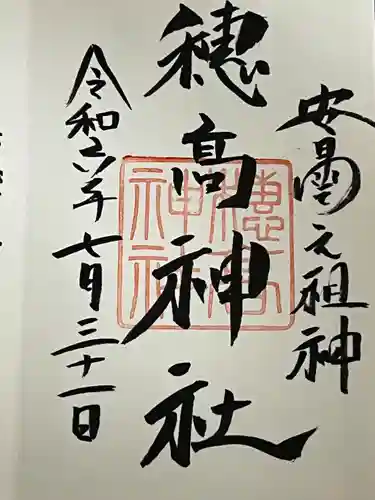 安曇元祖神
穂高神社
穂高神社
令和六年七月三十一日